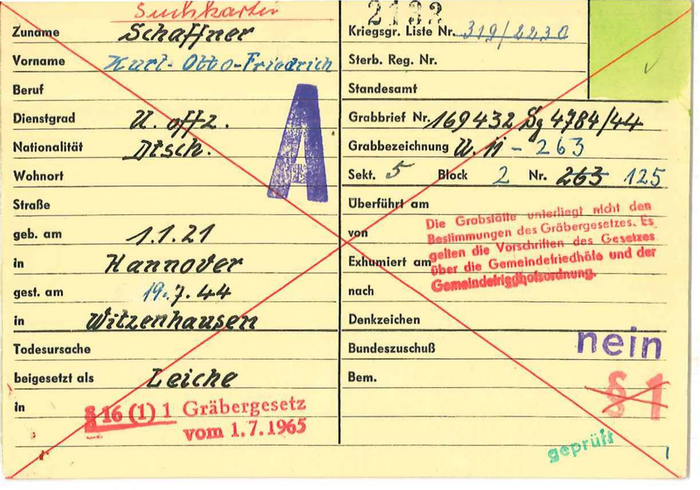 Suchkartei
Zuname Schaffner
Vorname Kurt-Otto-Friedrich
Beruf
Dienstgrad U. offz.
Nationalität Dtsch.
Wohnort
Straße
geb. am 1.1.21
in Hannover
gest. am 19.7.44
in Witzenhausen
Todesursache
beigesetzt als Leiche
in
§ 16 (1) 1 Gräbergesetz
vom 1.7.1965
A
Kriegsgr. Liste Nr. 319/2230
Sterb. Reg. Nr.
Standesamt
Grabbrief Nr. 169432 Sg 4784/44
Grabbezeichnung U. 11 - 263
Sekt. 5 Block 2 Nr. 263 125
Überführt am
von
Exhumiert am
nach
Die Grabstätte unterliegt nicht den
Bestimmungen des Gräbergesetzes. Es
gelten die Vorschriften des Gesetzes
über die Gemeindefriedhöfe und der
Gemeindefriedhofsordnung.
Denkzeichen
Bundeszuschuß nein
Bem.
§ 1
geprüft